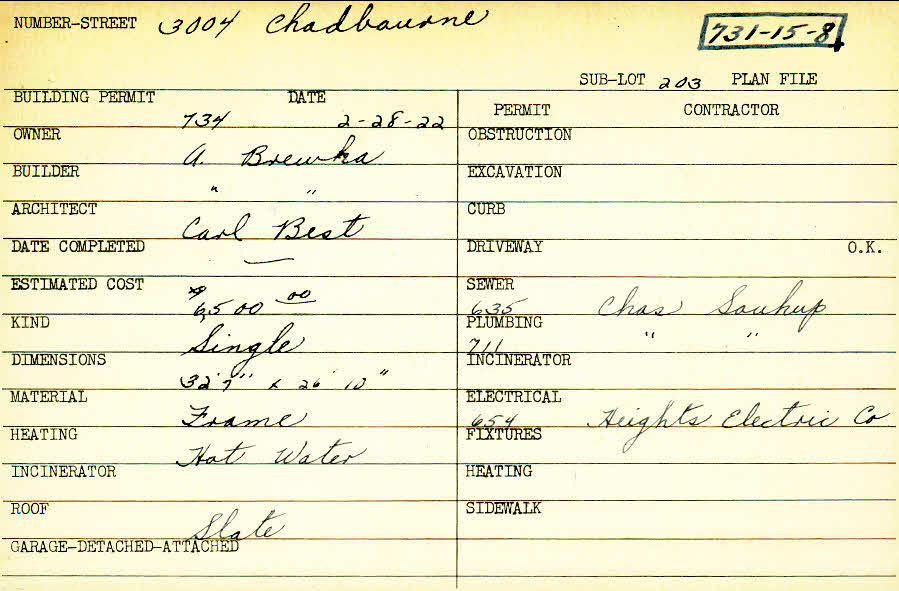 NUMBER-STREET 3004 Chadbourne
731-15-8
SUB-LOT 203 PLAN FILE
BUILDING PERMIT 734 DATE 2-28-22
PERMIT CONTRACTOR
OWNER A. Brewka
OBSTRUCTION
BUILDER " "
EXCAVATION
ARCHITECT Carl Best
CURB
DATE COMPLETED —
DRIVEWAY O.K.
ESTIMATED COST $6,500 00
SEWER 635 Chas Soukup
KIND Single
PLUMBING 711 " "
DIMENSIONS 32'7" x 26'10"
INCINERATOR
MATERIAL Frame
ELECTRICAL 654 Heights Electric Co
HEATING Hot Water
FIXTURES
INCINERATOR
HEATING
ROOF Slate
SIDEWALK
GARAGE-DETACHED-ATTACHED